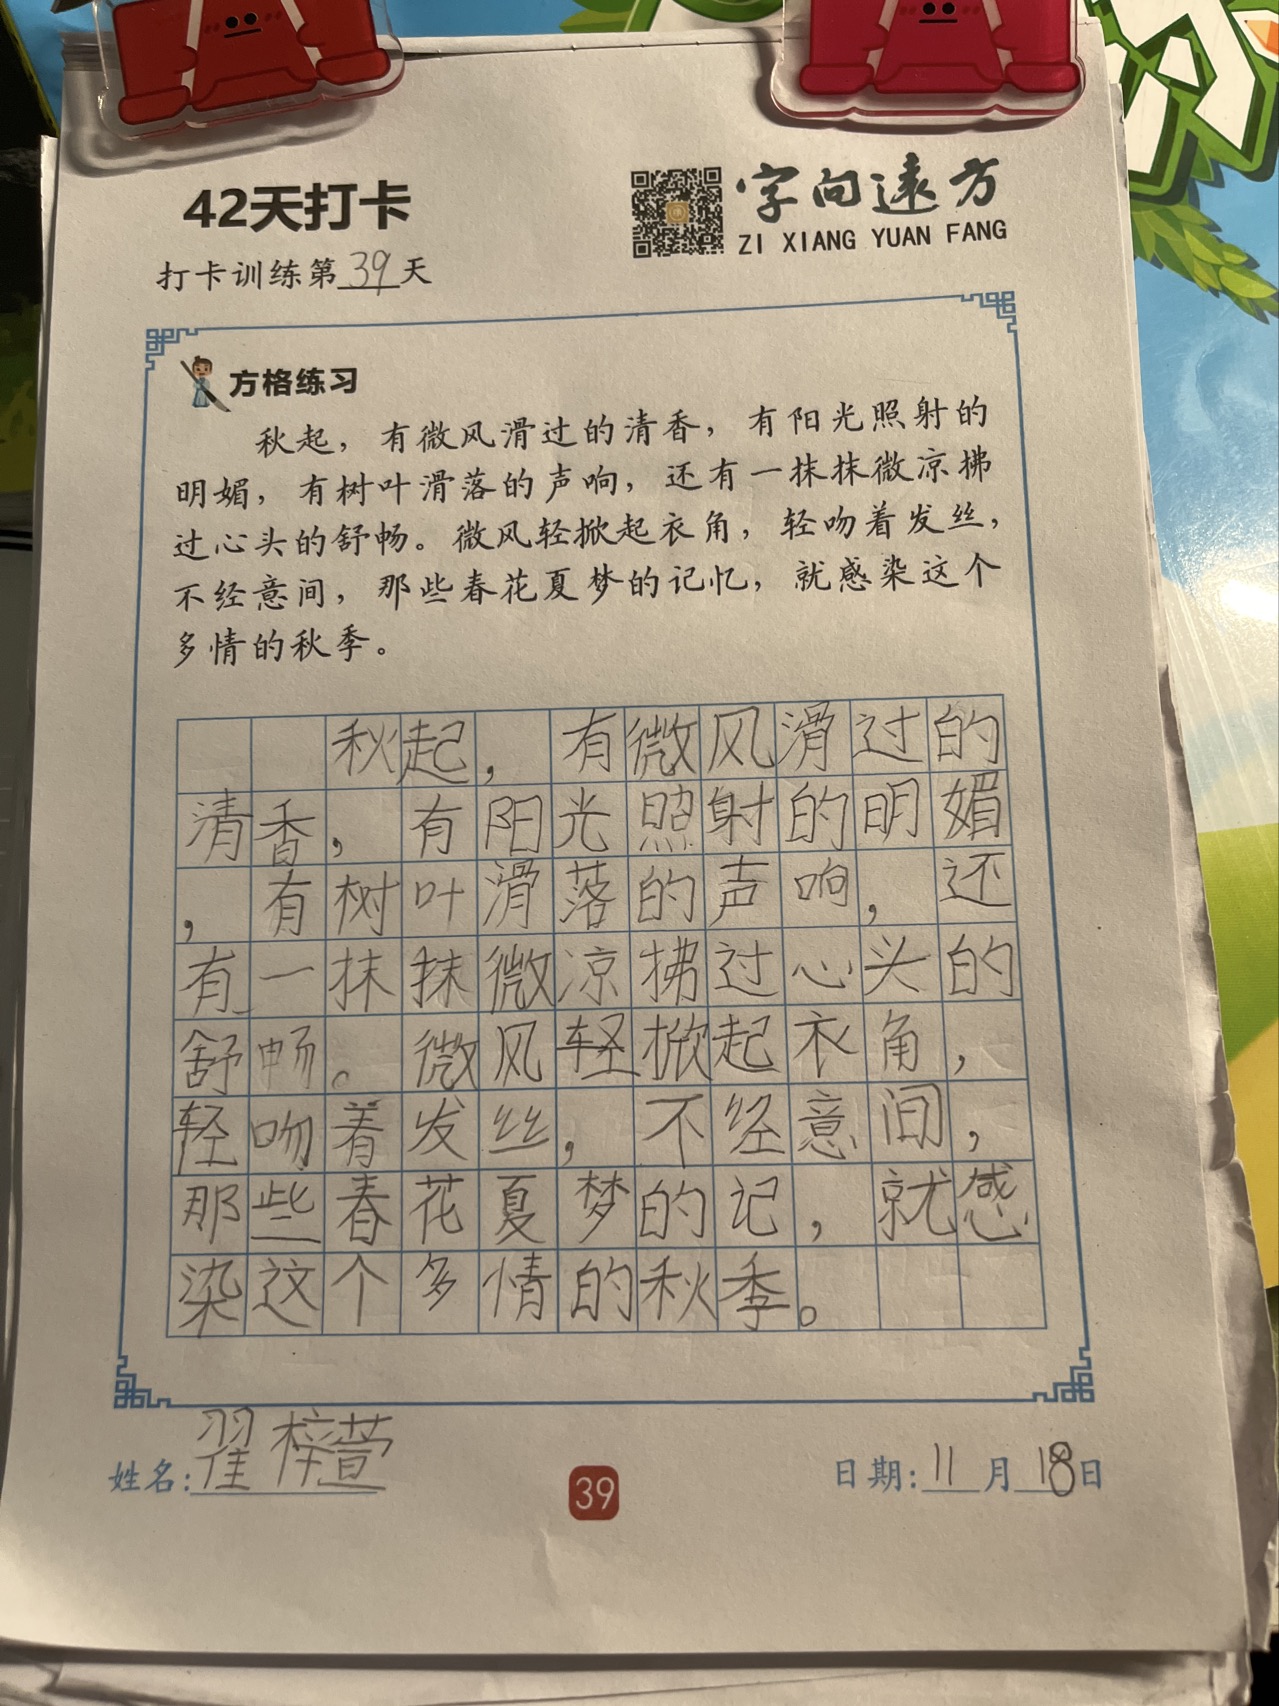 42天打卡
字向远方
ZI XIANG YUAN FANG
打卡训练第39天
方格练习
秋起，有微风滑过的清香，有阳光照射的
明媚，有树叶滑落的声响，还有一抹抹微凉拂
过心头的舒畅。微风轻掀起衣角，轻吻着发丝，
不经意间，那些春花夏梦的记忆，就感染这个
多情的秋季。
秋起，有微风滑过的
清香，有阳光照射的明媚
，有树叶滑落的声响，还
有一抹抹微凉拂过心头的
舒畅。微风轻掀起衣角，
轻吻着发丝，不经意间，
那些春花夏梦的记，就感
染这个多情的秋季。
姓名：翟梓萱
39
日期：11月18日